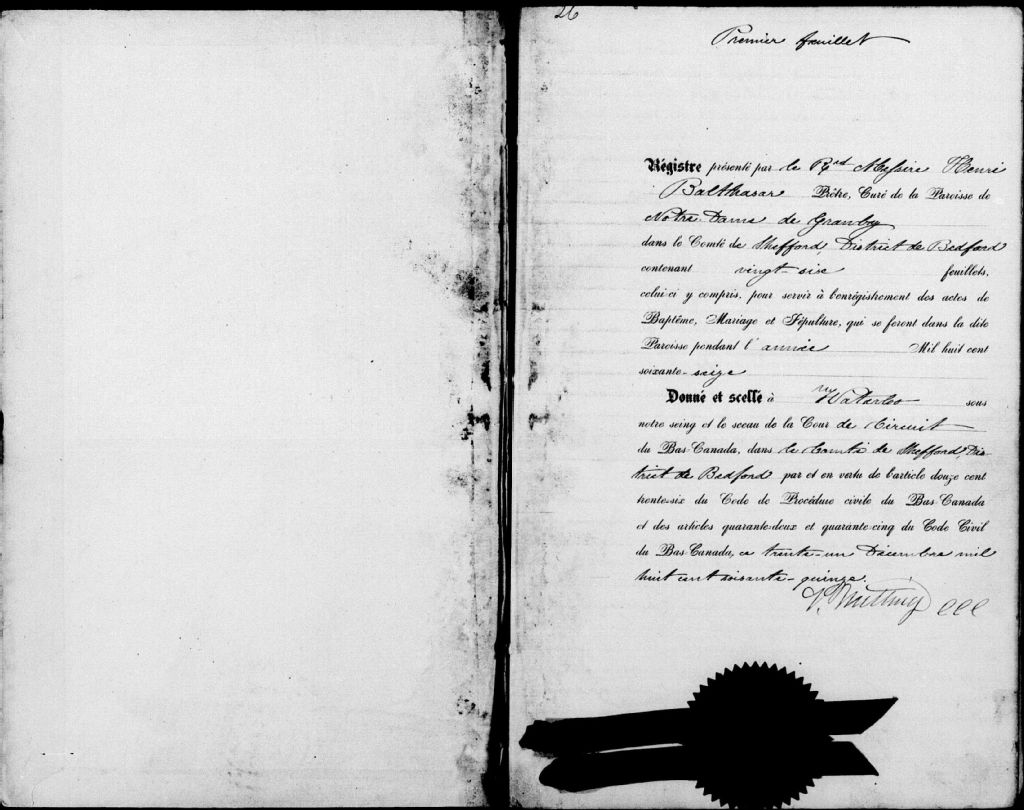 26
Premier feuillet
Régistre présenté par le Rd Messire Henri
Balthasar Prêtre, Curé de la Paroisse de
Notre Dame de Granby
dans le Comté de Shefford, District de Bedford
contenant vingt-six feuillets,
celui-ci y compris, pour servir à l'enrégistrement des actes de
Baptême, Mariage et Sépulture, qui se feront dans la dite
Paroisse pendant l'année Mil huit cent
soixante-seize
Donné et scellé à Waterloo sous
notre seing et le sceau de la Cour de Circuit
du Bas-Canada, dans le Comté de Shefford, Dis-
trict de Bedford par et en vertu de l'article douze cent
trente-six du Code de Procédure civile du Bas-Canada
et des articles quarante-deux et quarante-cinq du Code Civil
du Bas-Canada, ce trente-un Décembre mil
huit cent soixante-quinze.